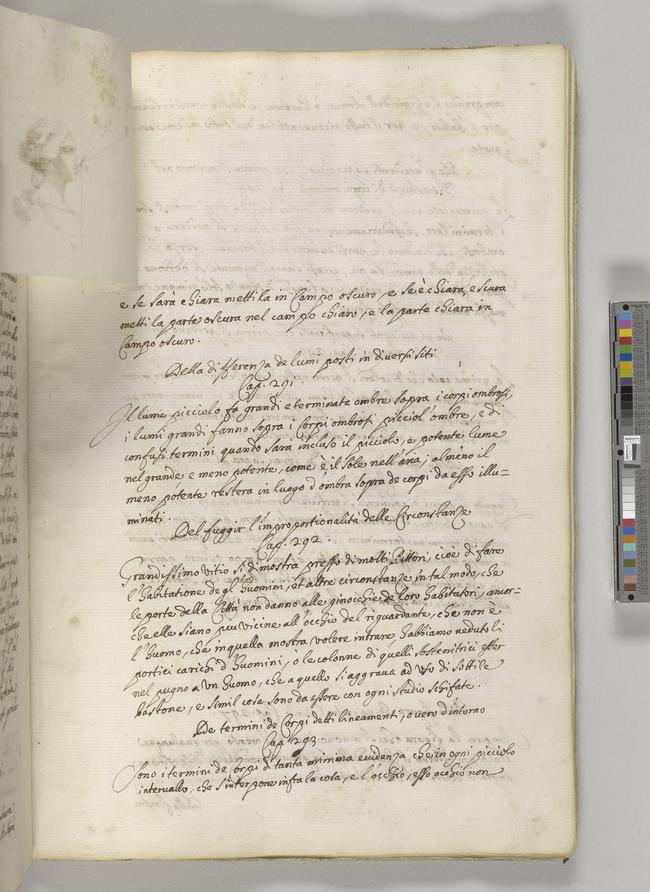 e se sarà chiara mettila in Campo oscuro, e se è chiara, e scura
metti la parte oscura nel campo chiaro, e la parte chiara in
Campo oscuro.
Della differenza de lumi posti in diversi siti
Cap. 291.
Il lume picciolo fa grandi e terminate ombre sopra i corpi ombrosi,
i lumi grandi fanno sopra i Corpi ombrosi picciol' ombre, e di
confusi termini quando sarà incluso il picciolo, e potente lume
nel grande e meno potente, come è il sole nell'aria; almeno il
meno potente resterà in luogo d'ombra sopra de corpi da esso illu-
minati.
Del fuggir l'improportionalità delle Circonstanze
Cap. 292.
Grandissimo vitio si dimostra presso di molti Pittori, cioè di fare
l'habitatione degl'Huomini, et altre circonstanze in tal modo, che
le porte della Città non danno alle ginocchie de loro habitatori, ancor-
che elle siano piu vicine all'occhio del riguardante, che non è
l'huomo, che in quella mostra volere intrare. Habbiamo veduto li
portici carichi d'Huomini, e le colonne di quelli sostenitrici esser
nel pugno a un huomo, che a quello si aggrava ad uso di sottile
bastone, e simil cose sono da essere con ogni studio schifate.
De termini de Corpi detti lineamenti, overo d'intorno
Cap. 293.
Sono i termini de Corpi di tanta minima evidenza che in ogni picciolo
intervallo, che s'interpone infra la cosa, e l'occhio, esso occhio non